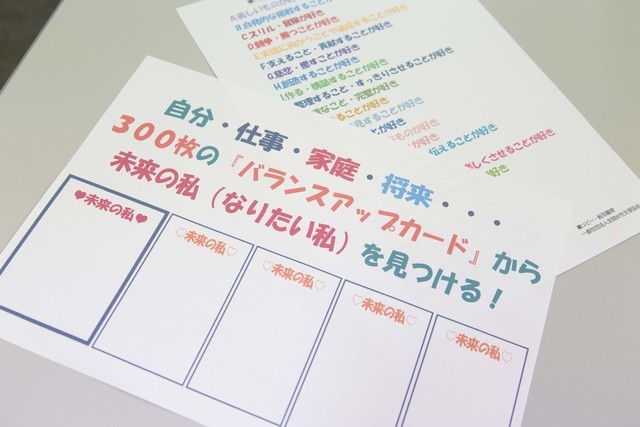 A.美しいものが
B.自発的な挑戦することが好き
C.スリル・冒険が好き
D.競争・勝つことが好き
E.実現に向かうことや達成することが好き
F.支えること・貢献することが好き
G.慈悲・癒すことが好き
H.創造することが好き
I.作る・構築することが好き
整理する・すっきりさせることが好き
なこと・完璧が好き
見することが好き
とが好き
ものが好き
伝えることが好き
しくさせることが好き
好き
自分・仕事・家庭・将来・・・
300枚の『バランスアップカード』から
未来の私（なりたい私）を見つける！
♥未来の私♥
♡未来の私♡
♡未来の私♡
♡未来の私♡
♡未来の私♡
■コピー・転写厳禁